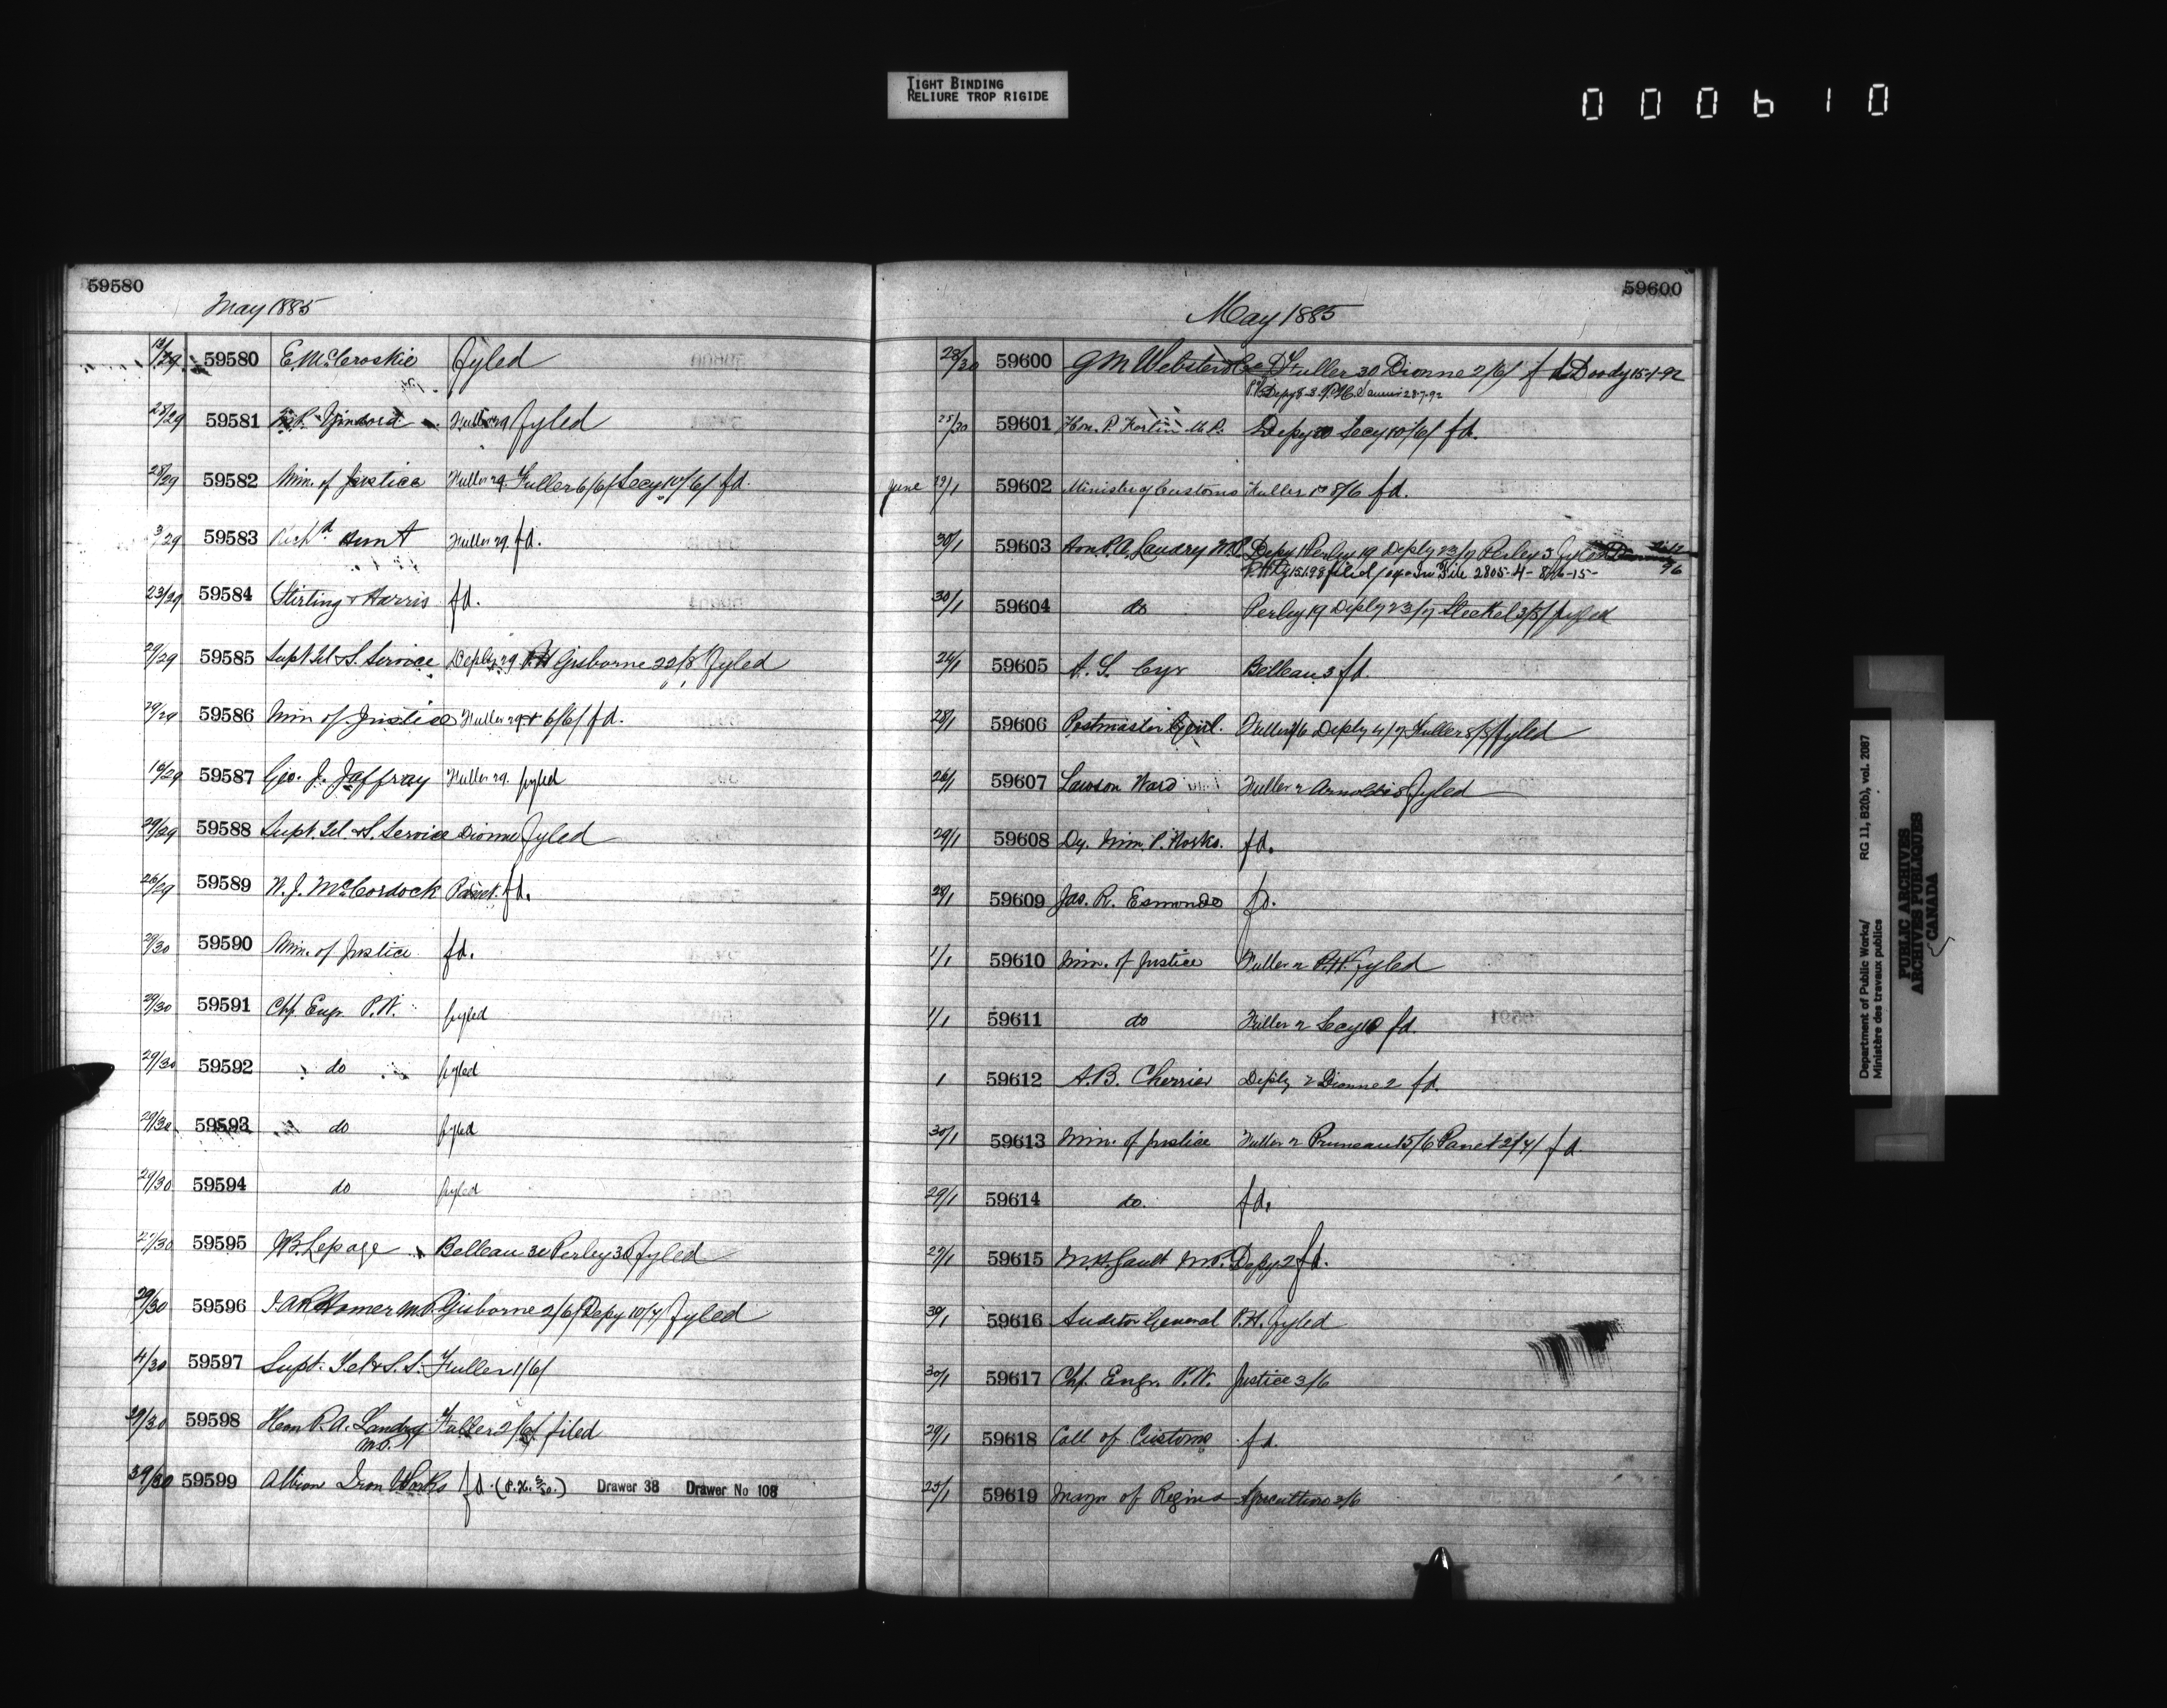 TIGHT BINDING
RELIURE TROP RIGIDE
000610
59580
May 1885
29 59580 E. McCroskie fyled
28/29 59581 Fuller 29 fyled
28/29 59582 Min. of Justice Fuller 29. Fuller 6/6/ Secy 10/6/ fd.
3/29 59583 Richd. Hunt Fuller 29 fd.
23/29 59584 Stirling & Harris fd.
29/29 59585 Supt Tel & S. Service Deply 29 P.H Gisborne 22/8 Fyled
29/29 59586 Min of Justice Fuller 29 & 6/6/ fd.
16/29 59587 Geo. J. Jaffray Fuller 29. fyled
29/29 59588 Supt. Tel & S. Service Dionne Fyled
26/29 59589 N. J. McCordock Panet. fd.
29/30 59590 Min. of Justice fd.
29/30 59591 Chf. Engr. P.W. fyled
29/30 59592 do fyled
29/30 59593 do fyled
29/30 59594 do fyled
27/30 59595 Lepage Belleau 30 Perley 30 Fyled
29/30 59596 J.A.R. Homer M.P. Gisborne 2/6/ Depy 10/7/ Fyled
4/30 59597 Supt. Tel & S.S. Fuller 1/6/
29/30 59598 Hon P.A. Landry Fuller 2/6/ filed
M.P.
59599 Albion Iron Works fd. (P.H. ) Drawer 38 Drawer No 108
59600
May 1885
28/30 59600 G M Webster & Co D Fuller 30 Dionne 2/6/ fd Doody 15-1-92
28-7-92
25/30 59601 Hon. P. Fortin M.P. Depy 30 Secy 10/6/ fd.
June 19/1 59602 Minister of Customs Fuller 1 & 8/6 fd.
30/1 59603 Hon. P.A. Landry M.P. Depy 1 Perley 19 Deply 23/7 Perley 3 Fyled
filed In File 2805-4-
30/1 59604 do Perley 19 Deply 23/7 Steckel 3/8/ fyled
26/1 59605 A. S. Cyr Belleau 3 fd.
28/1 59606 Postmaster Genl. Deply 4/7 Fuller 8/8/ Fyled
26/1 59607 Lawson Ward Fuller 2 Arnoldi 8 Fyled
29/1 59608 Dy. Min. P. Works. fd.
28/1 59609 Jas. R. Esmonde fd.
1/1 59610 Min. of Justice Fuller 2 P.H. Fyled
1/1 59611 do Fuller 2 Secy 10 fd.
1 59612 A.B. Cherrier Deply 2 Dionne 2 fd.
30/1 59613 Min. of Justice Fuller 2 Pruneau 15/6 Panet 2/7/ fd.
29/1 59614 do. fd.
27/1 59615 M.H. Gault M.P. Depy. 2 fd.
30/1 59616 Auditor General P.H. Fyled
30/1 59617 Chf. Engr. P.W. Justice 3/6
29/1 59618 Coll of Customs fd.
25/1 59619 Mayor of Regina Agriculture 2/6
Department of Public Works/
Ministère des travaux publics
RG 11, B2(b), vol. 2087
PUBLIC ARCHIVES
ARCHIVES PUBLIQUES
CANADA